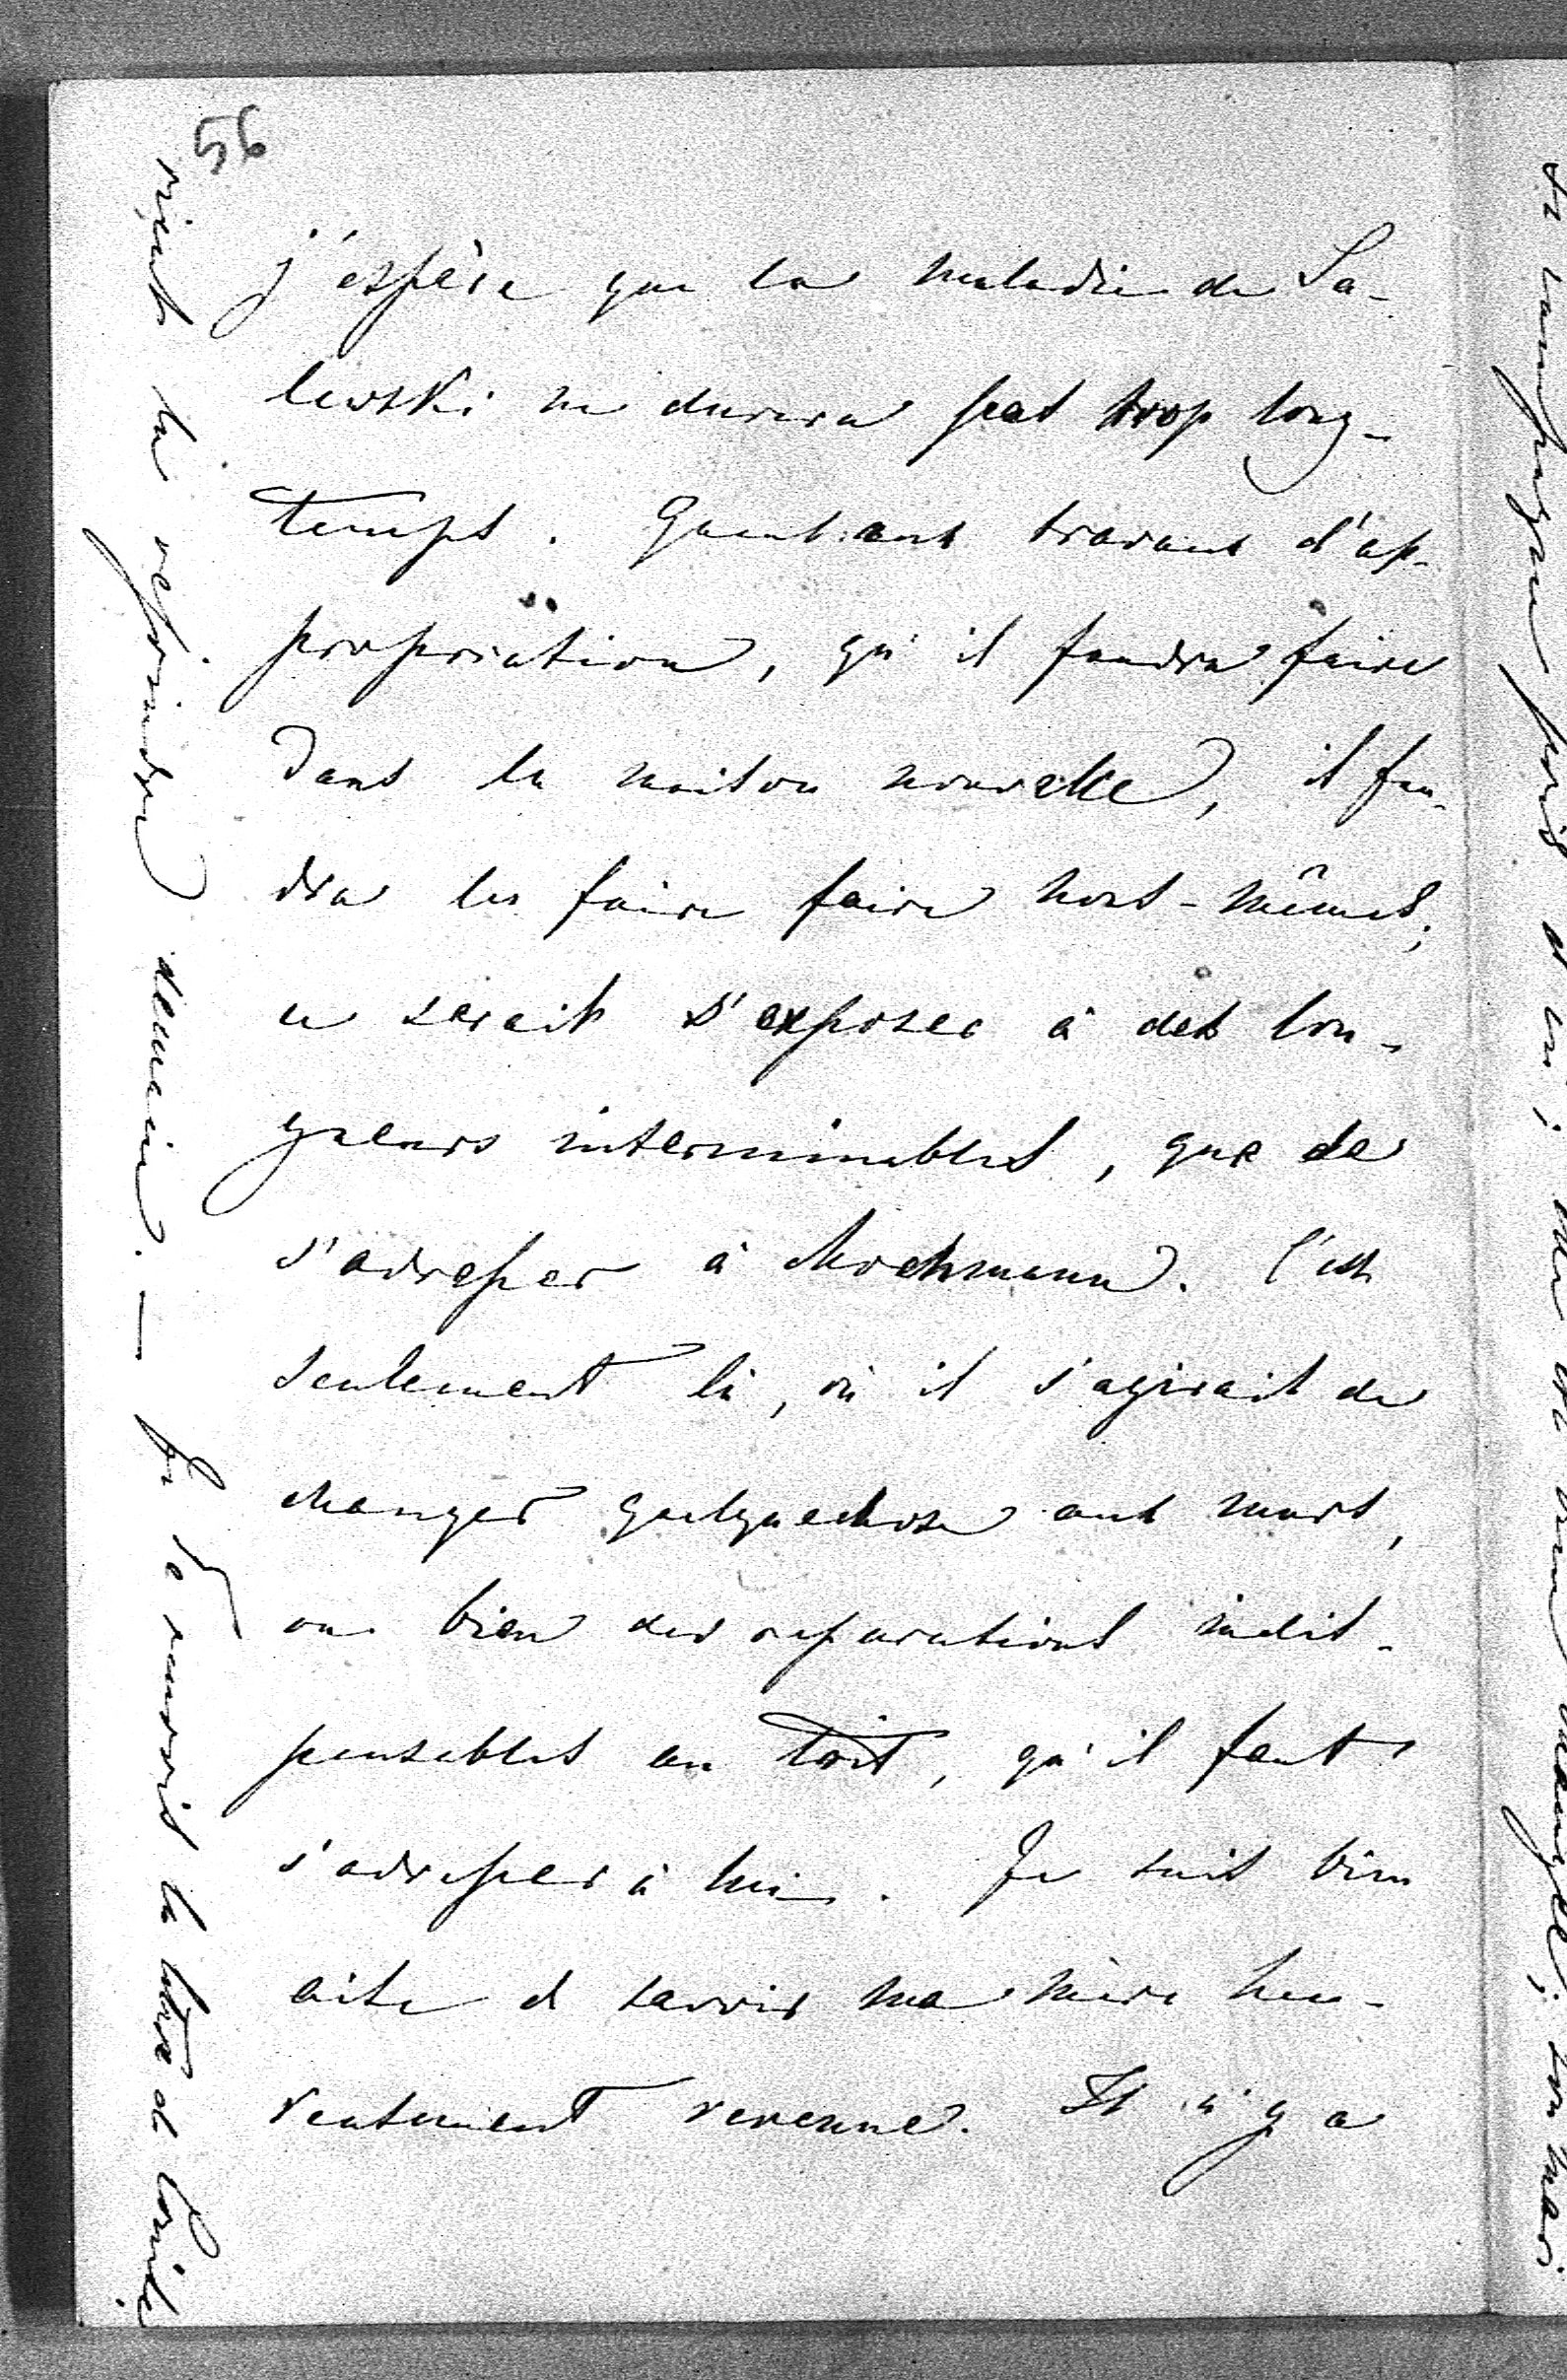 56
j'espère que la maladie de Sa-
lewski ne durera pas trop long-
temps. Quant aux travaux d'ap-
propriation, qu'il faudra faire
dans la maison nouvelle, il fau-
dra les faire faire nous-mêmes;
ce serait s'exposer à des lon-
gueurs interminables, que de
s'adresser à Mochmann. C'est
seulement là, où il s'agirait de
changer quelquechose aux murs,
ou bien des reparations indis-
pensables au toit, qu'il faut
s'adresser à lui. Je suis bien
aise de savoir ma mère heu-
reusement revenue. Il n'y a
vient la rejoindre demain. — Je te renvois la lettre de
sa campagne puis mari